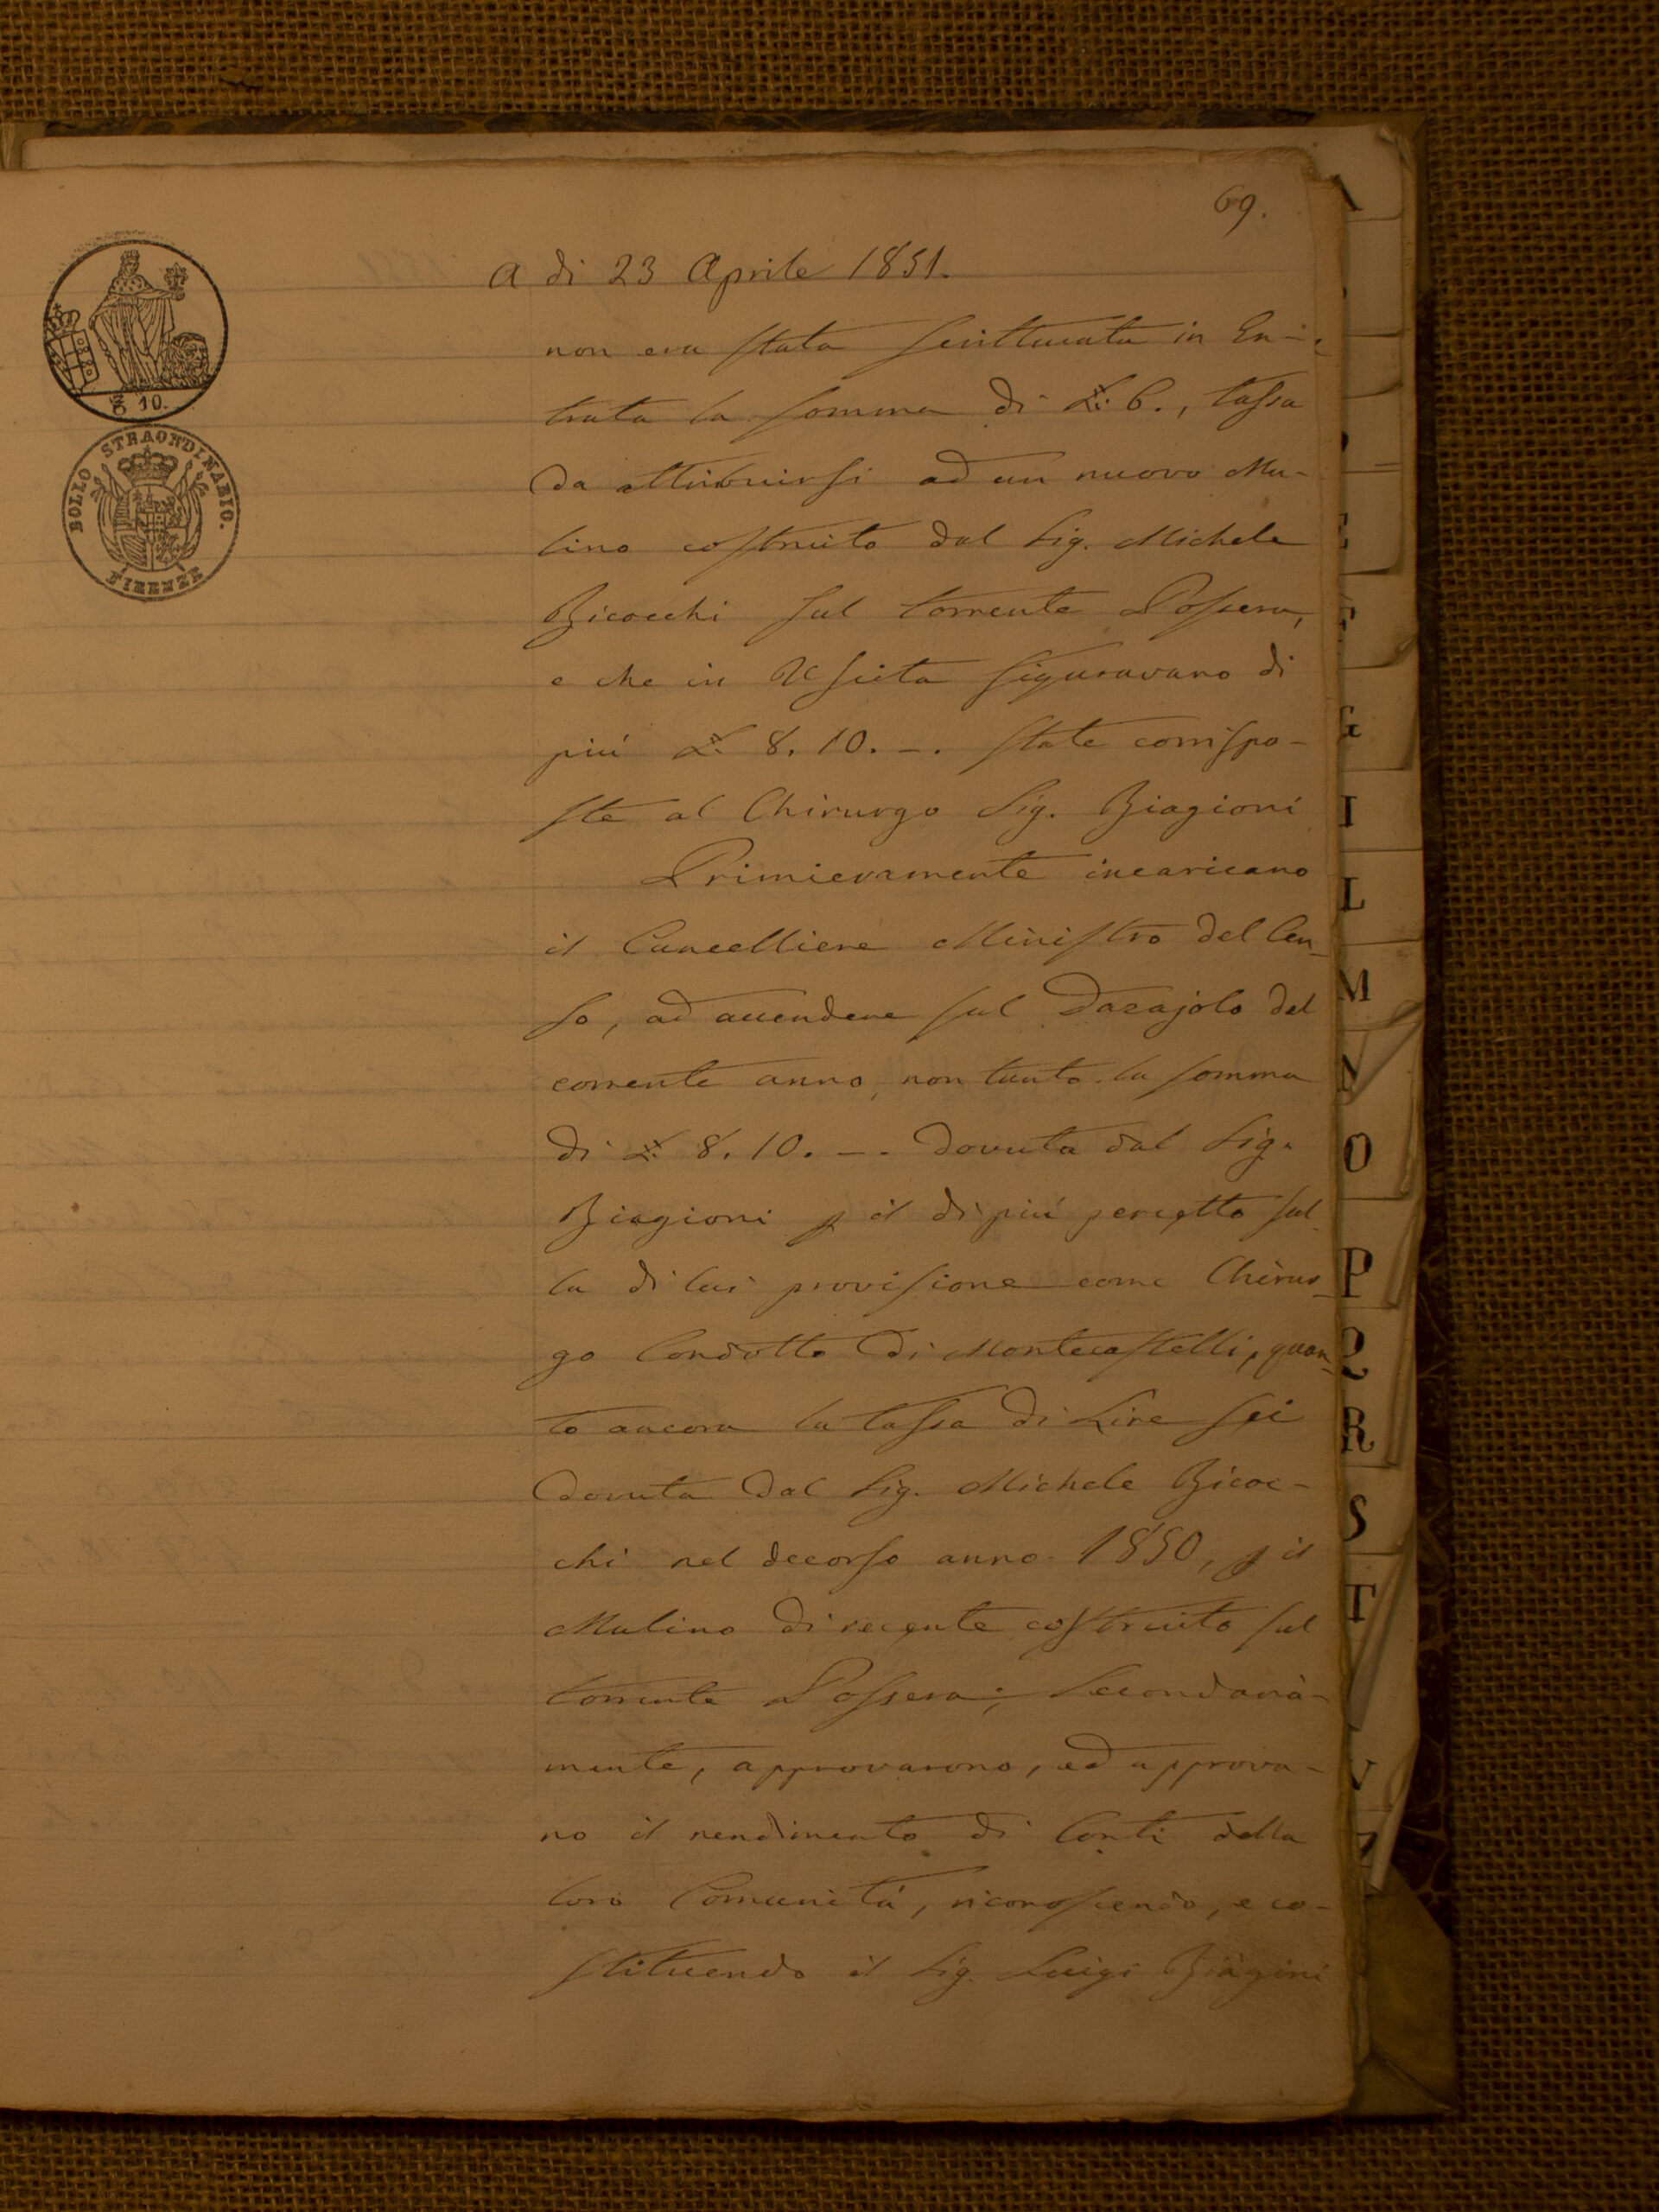 69.
A di 23 Aprile 1851.
10.
BOLLO STRAORDINARIO.
FIRENZE
non era stata scritturata in En-
trata la somma di £: 6., tassa
da attribuirsi ad un nuovo Mu-
lino costruito dal Sig. Michele
Bicocchi sul torrente Possera,
e che in Uscita figuravano di
più £: 8. 10. -. state corrispo-
ste al Chirurgo Sig. Biagioni
Primieramente incaricano
il Cancelliere Ministro del Cen-
so, ad accendere sul Dazajolo del
corrente anno, non tanto la somma
di £: 8. 10. -. dovuta dal Sig.
Biagioni p il di più percetto sul-
la di lui provisione come Chirur-
go Condotto di Montecastelli, quan-
to ancora la tassa di Lire sei
dovuta dal Sig. Michele Bicoc-
chi nel decorso anno 1850, p il
Mulino di recente costruito sul
torrente Possera; Secondaria-
mente, approvarono, ed approva-
no il rendimento di Conti della
loro Comunità, riconoscendo, e co-
stituendo il Sig. Luigi Biagini
A
E
F
G
I
L
M
N
O
P
Q
R
S
T
V
Z